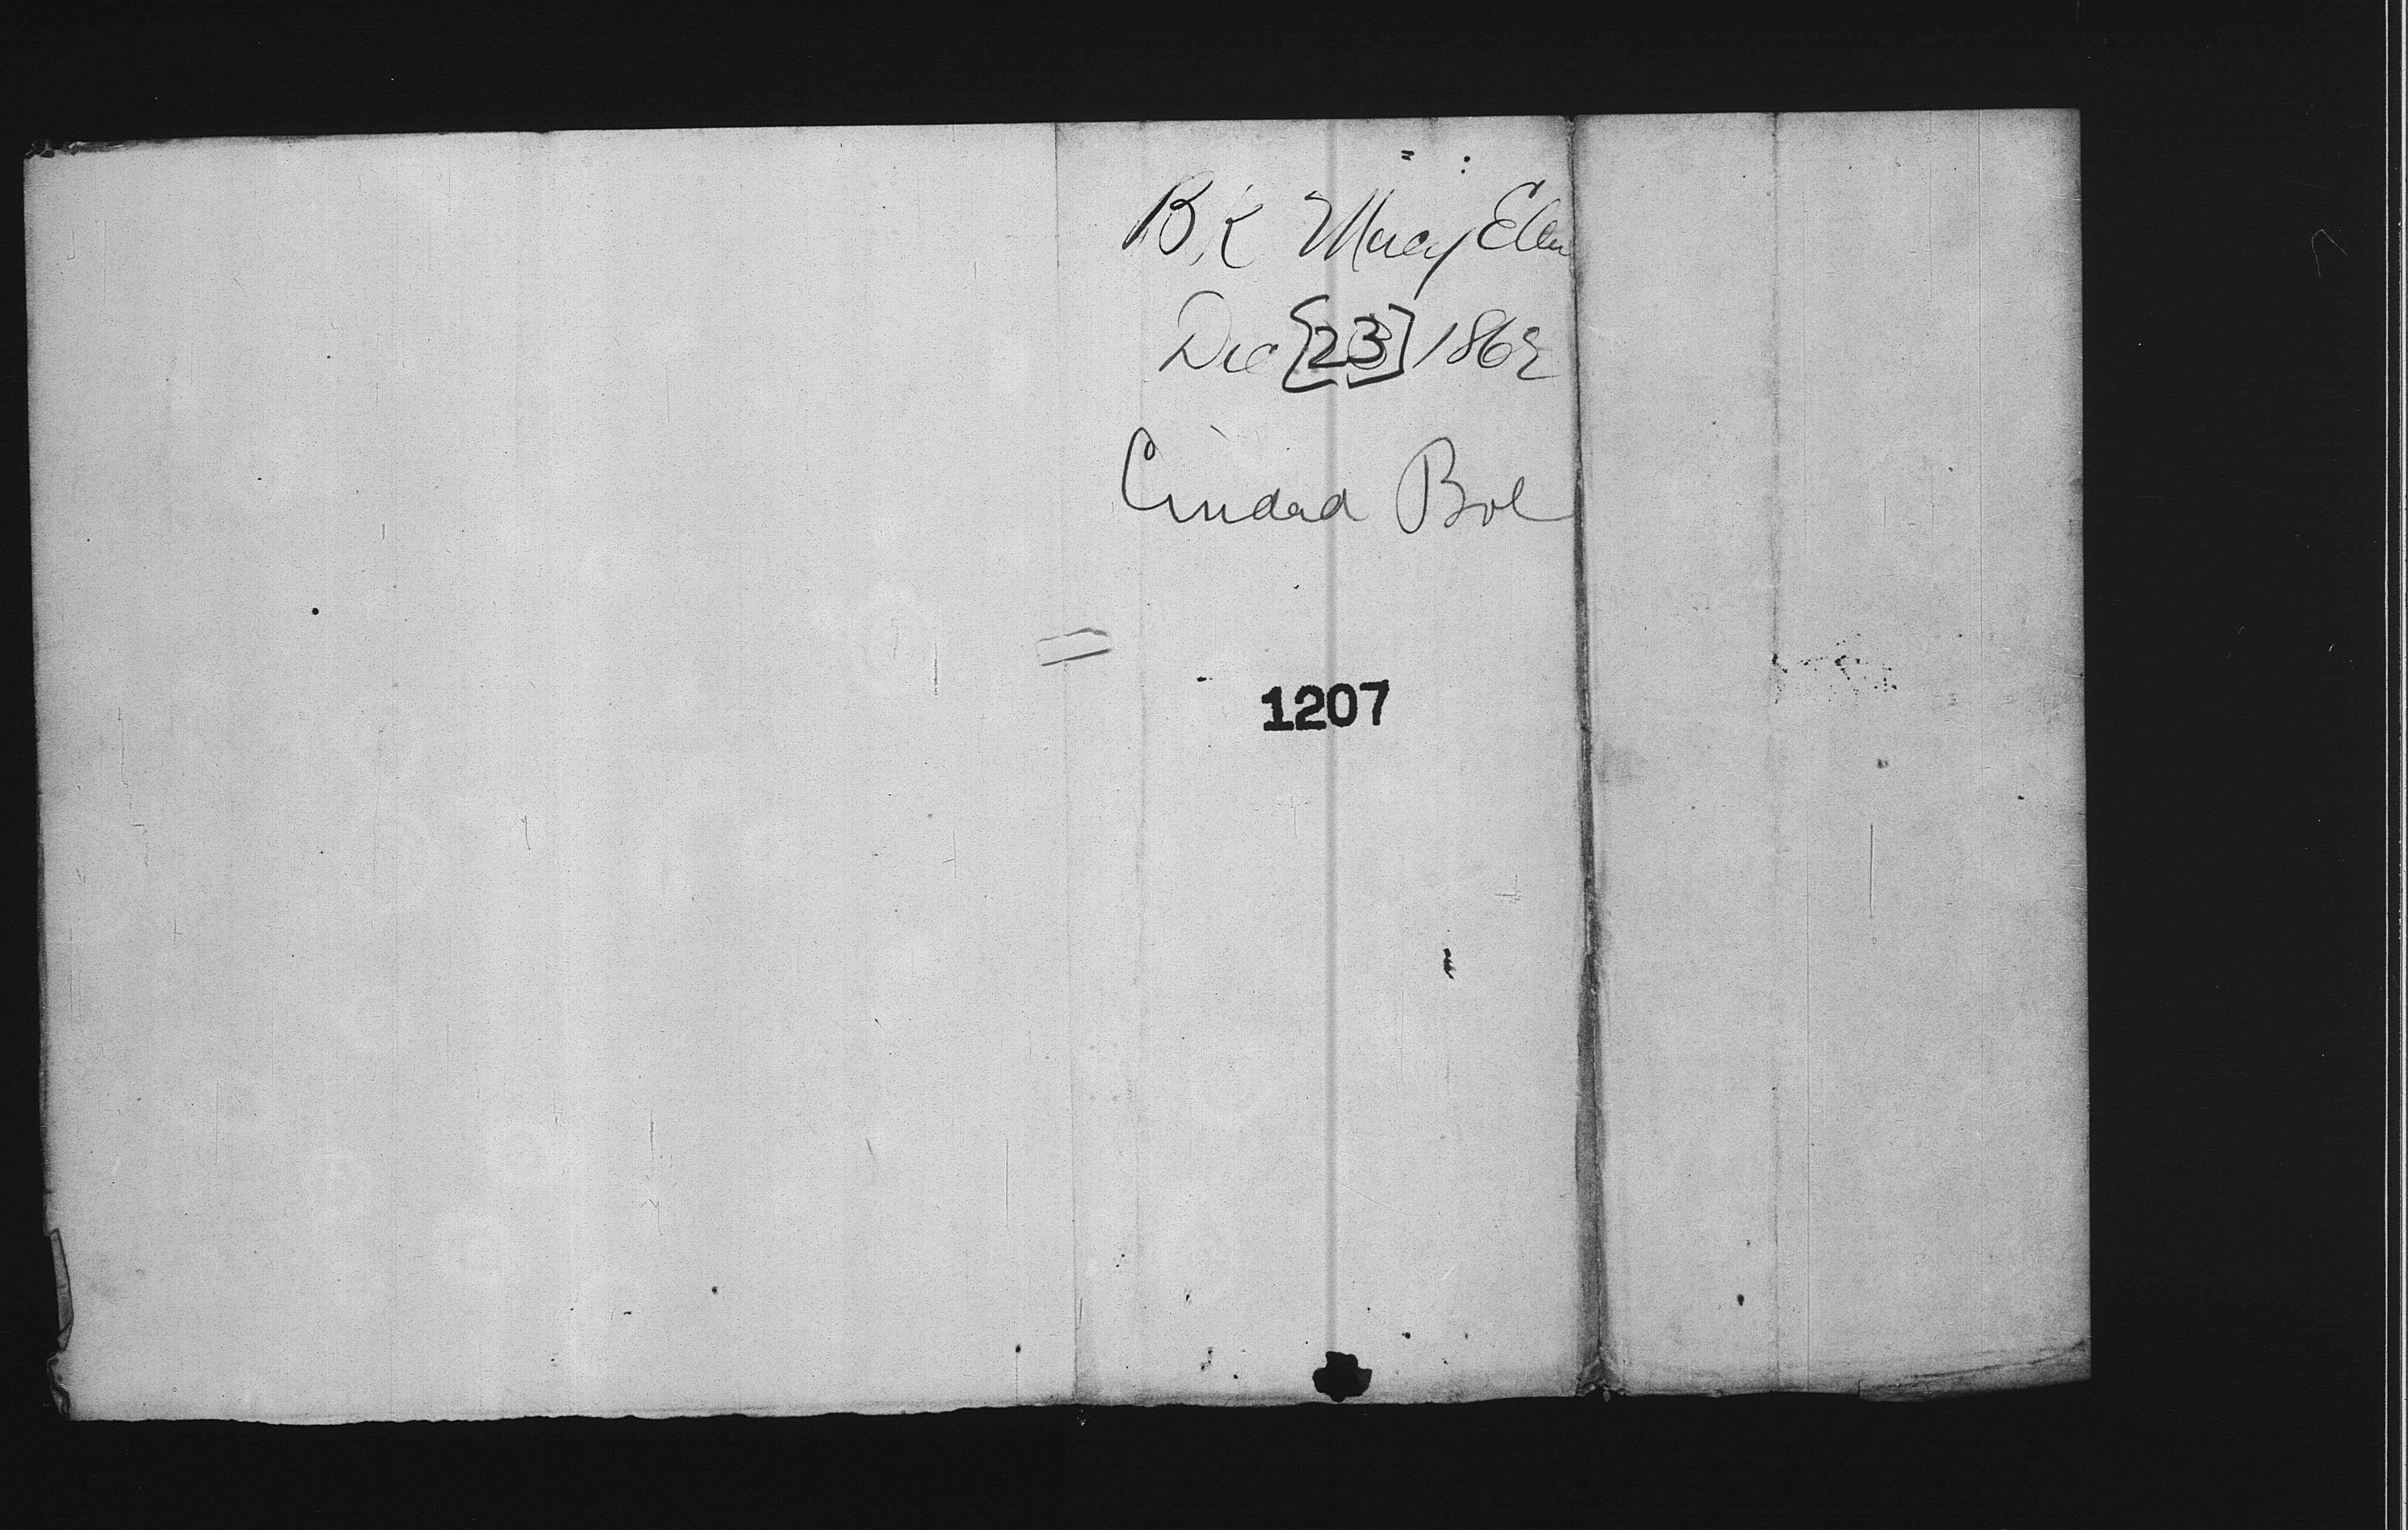 Bk Mary Ellen
Dec [23] 1862
Ciudad Bol
1207